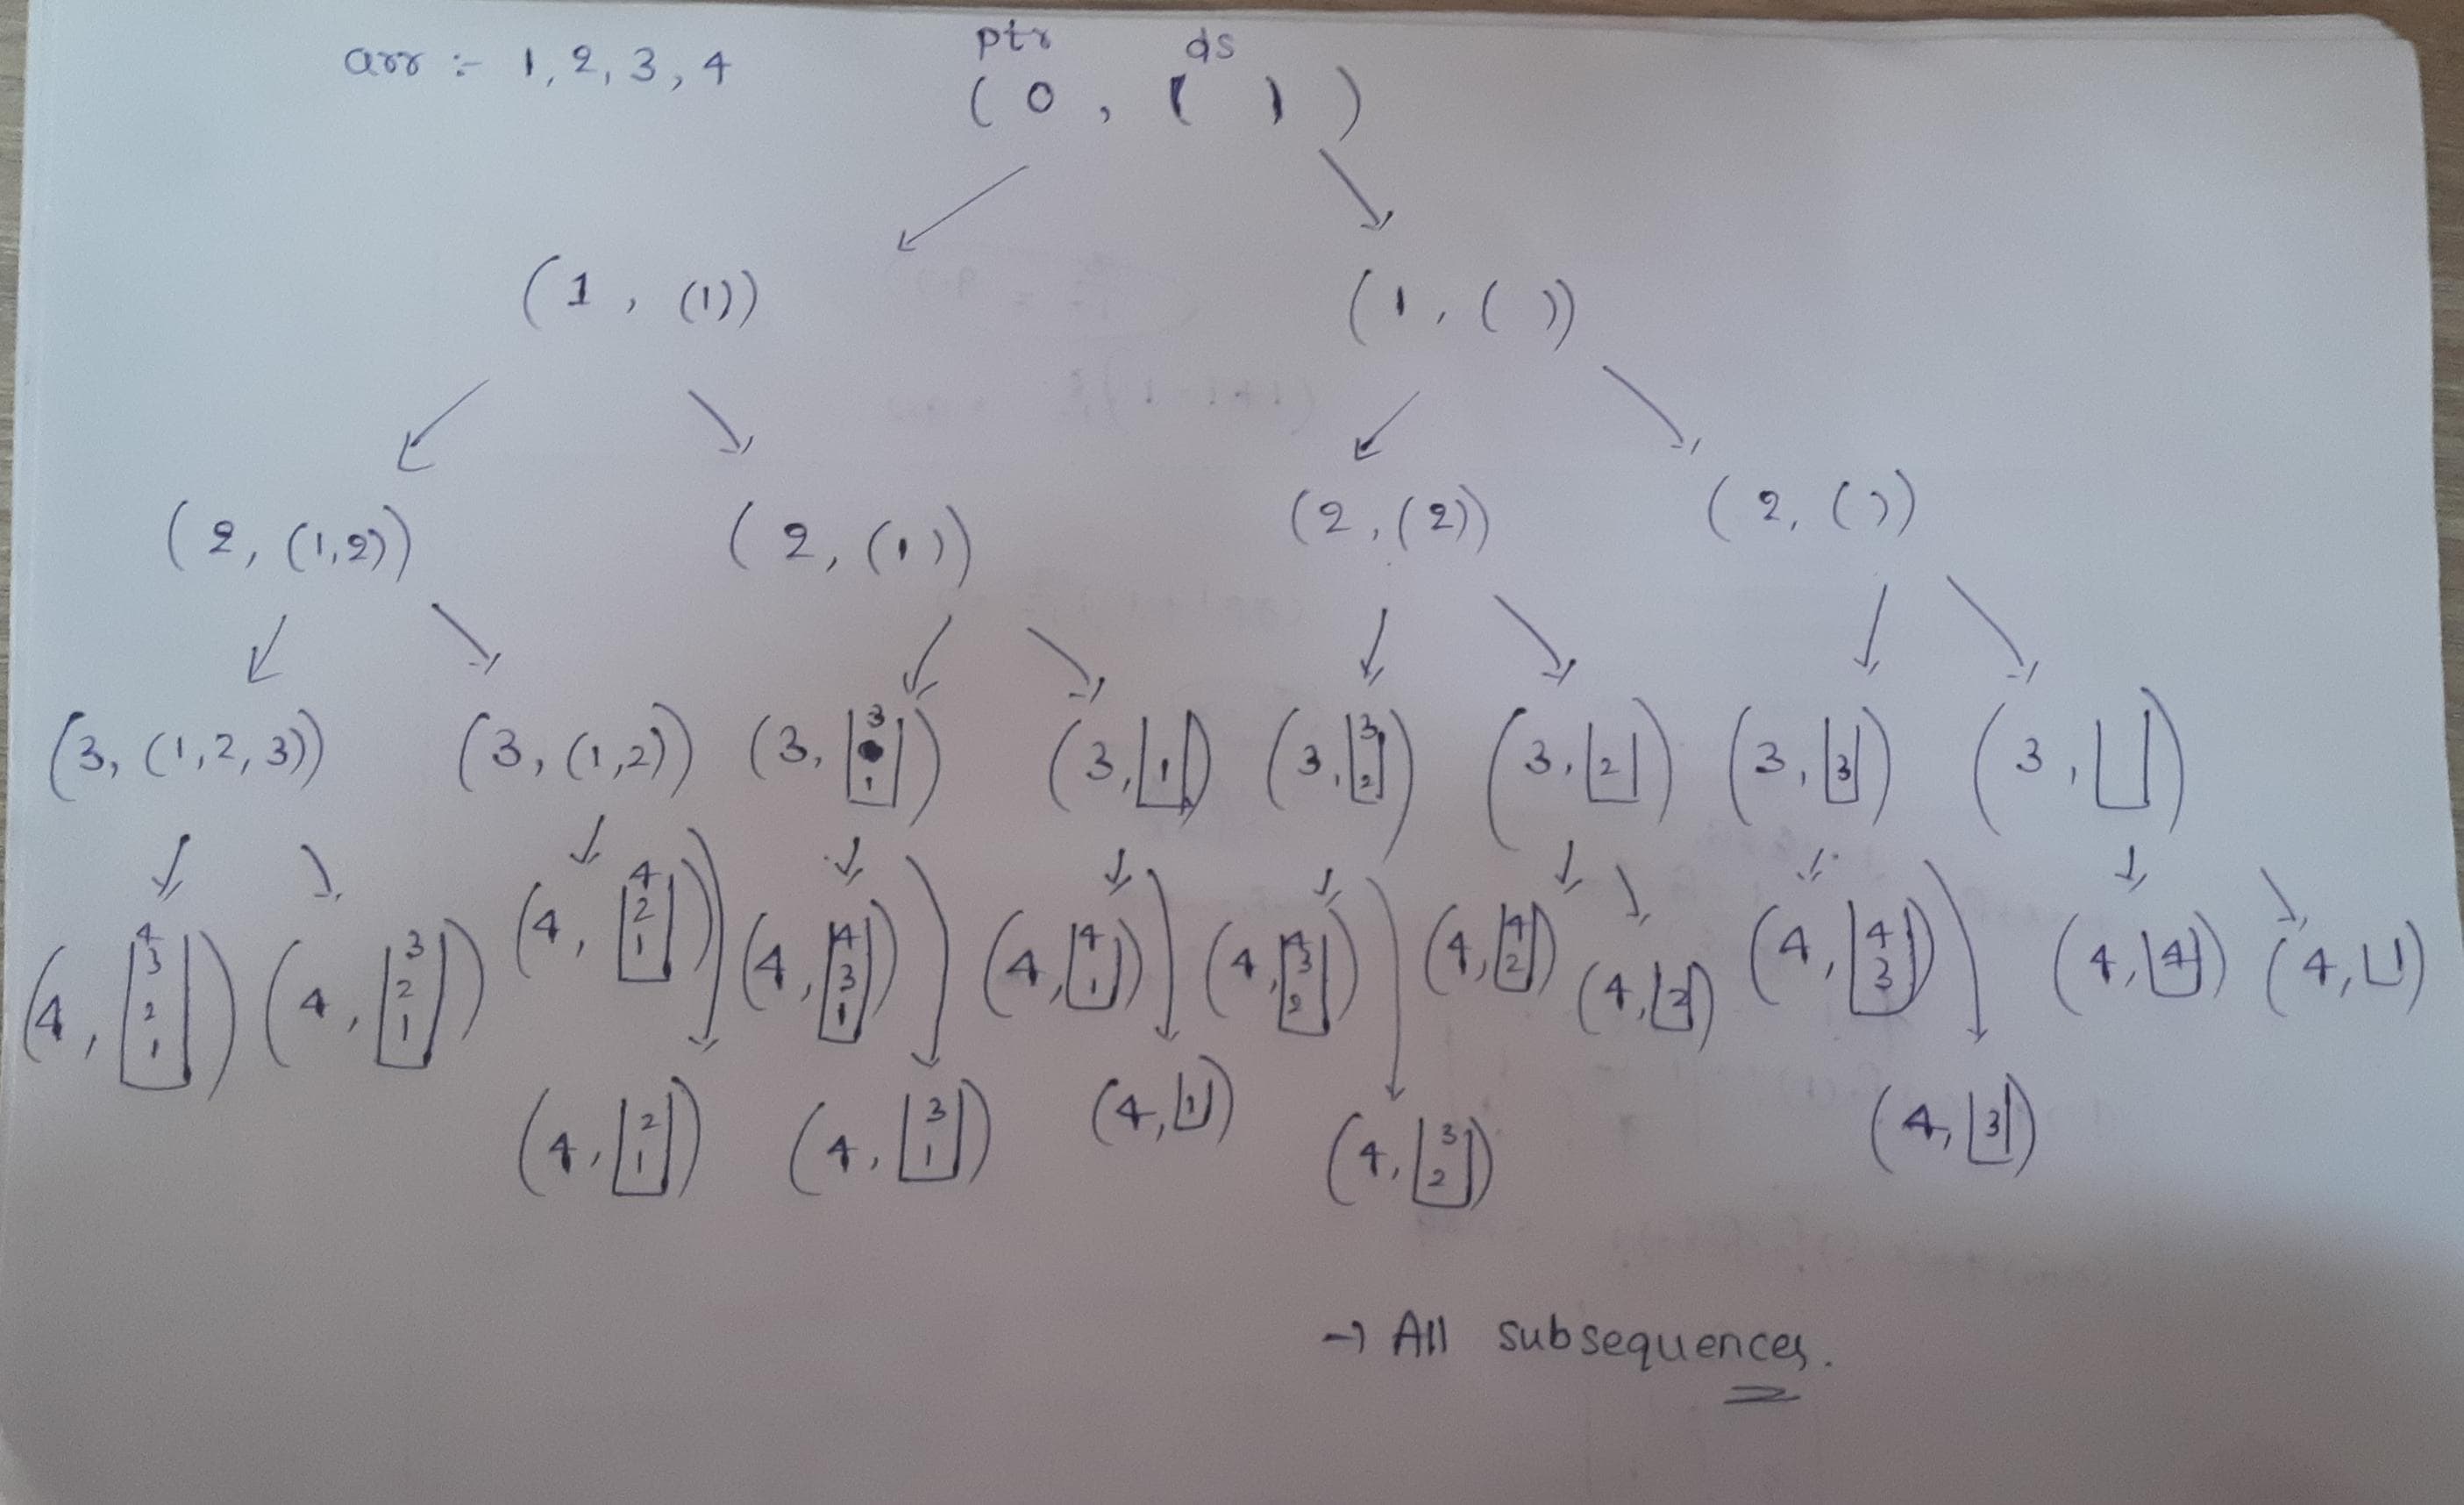 arr :- 1, 2, 3, 4
ptr ds
( 0 , ( ) )
(1 , (1)) (1, ( ))
(2, (1,2)) (2, (1)) (2, (2)) (2, ( ))
(3, (1,2,3)) (3, (1,2)) (3, 3 1) (3, 1) (3, 3 2) (3, 2) (3, 3) (3, )
(4, 4 3 2 1) (4, 3 2 1) (4, 4 2 1) (4, 4 3 1) (4, 4 1) (4, 4 3 2) (4, 4 2) (4, 2) (4, 4 3) (4, 4) (4, )
(4, 2 1) (4, 3 1) (4, 1) (4, 3 2) (4, 3)
→ All subsequences.